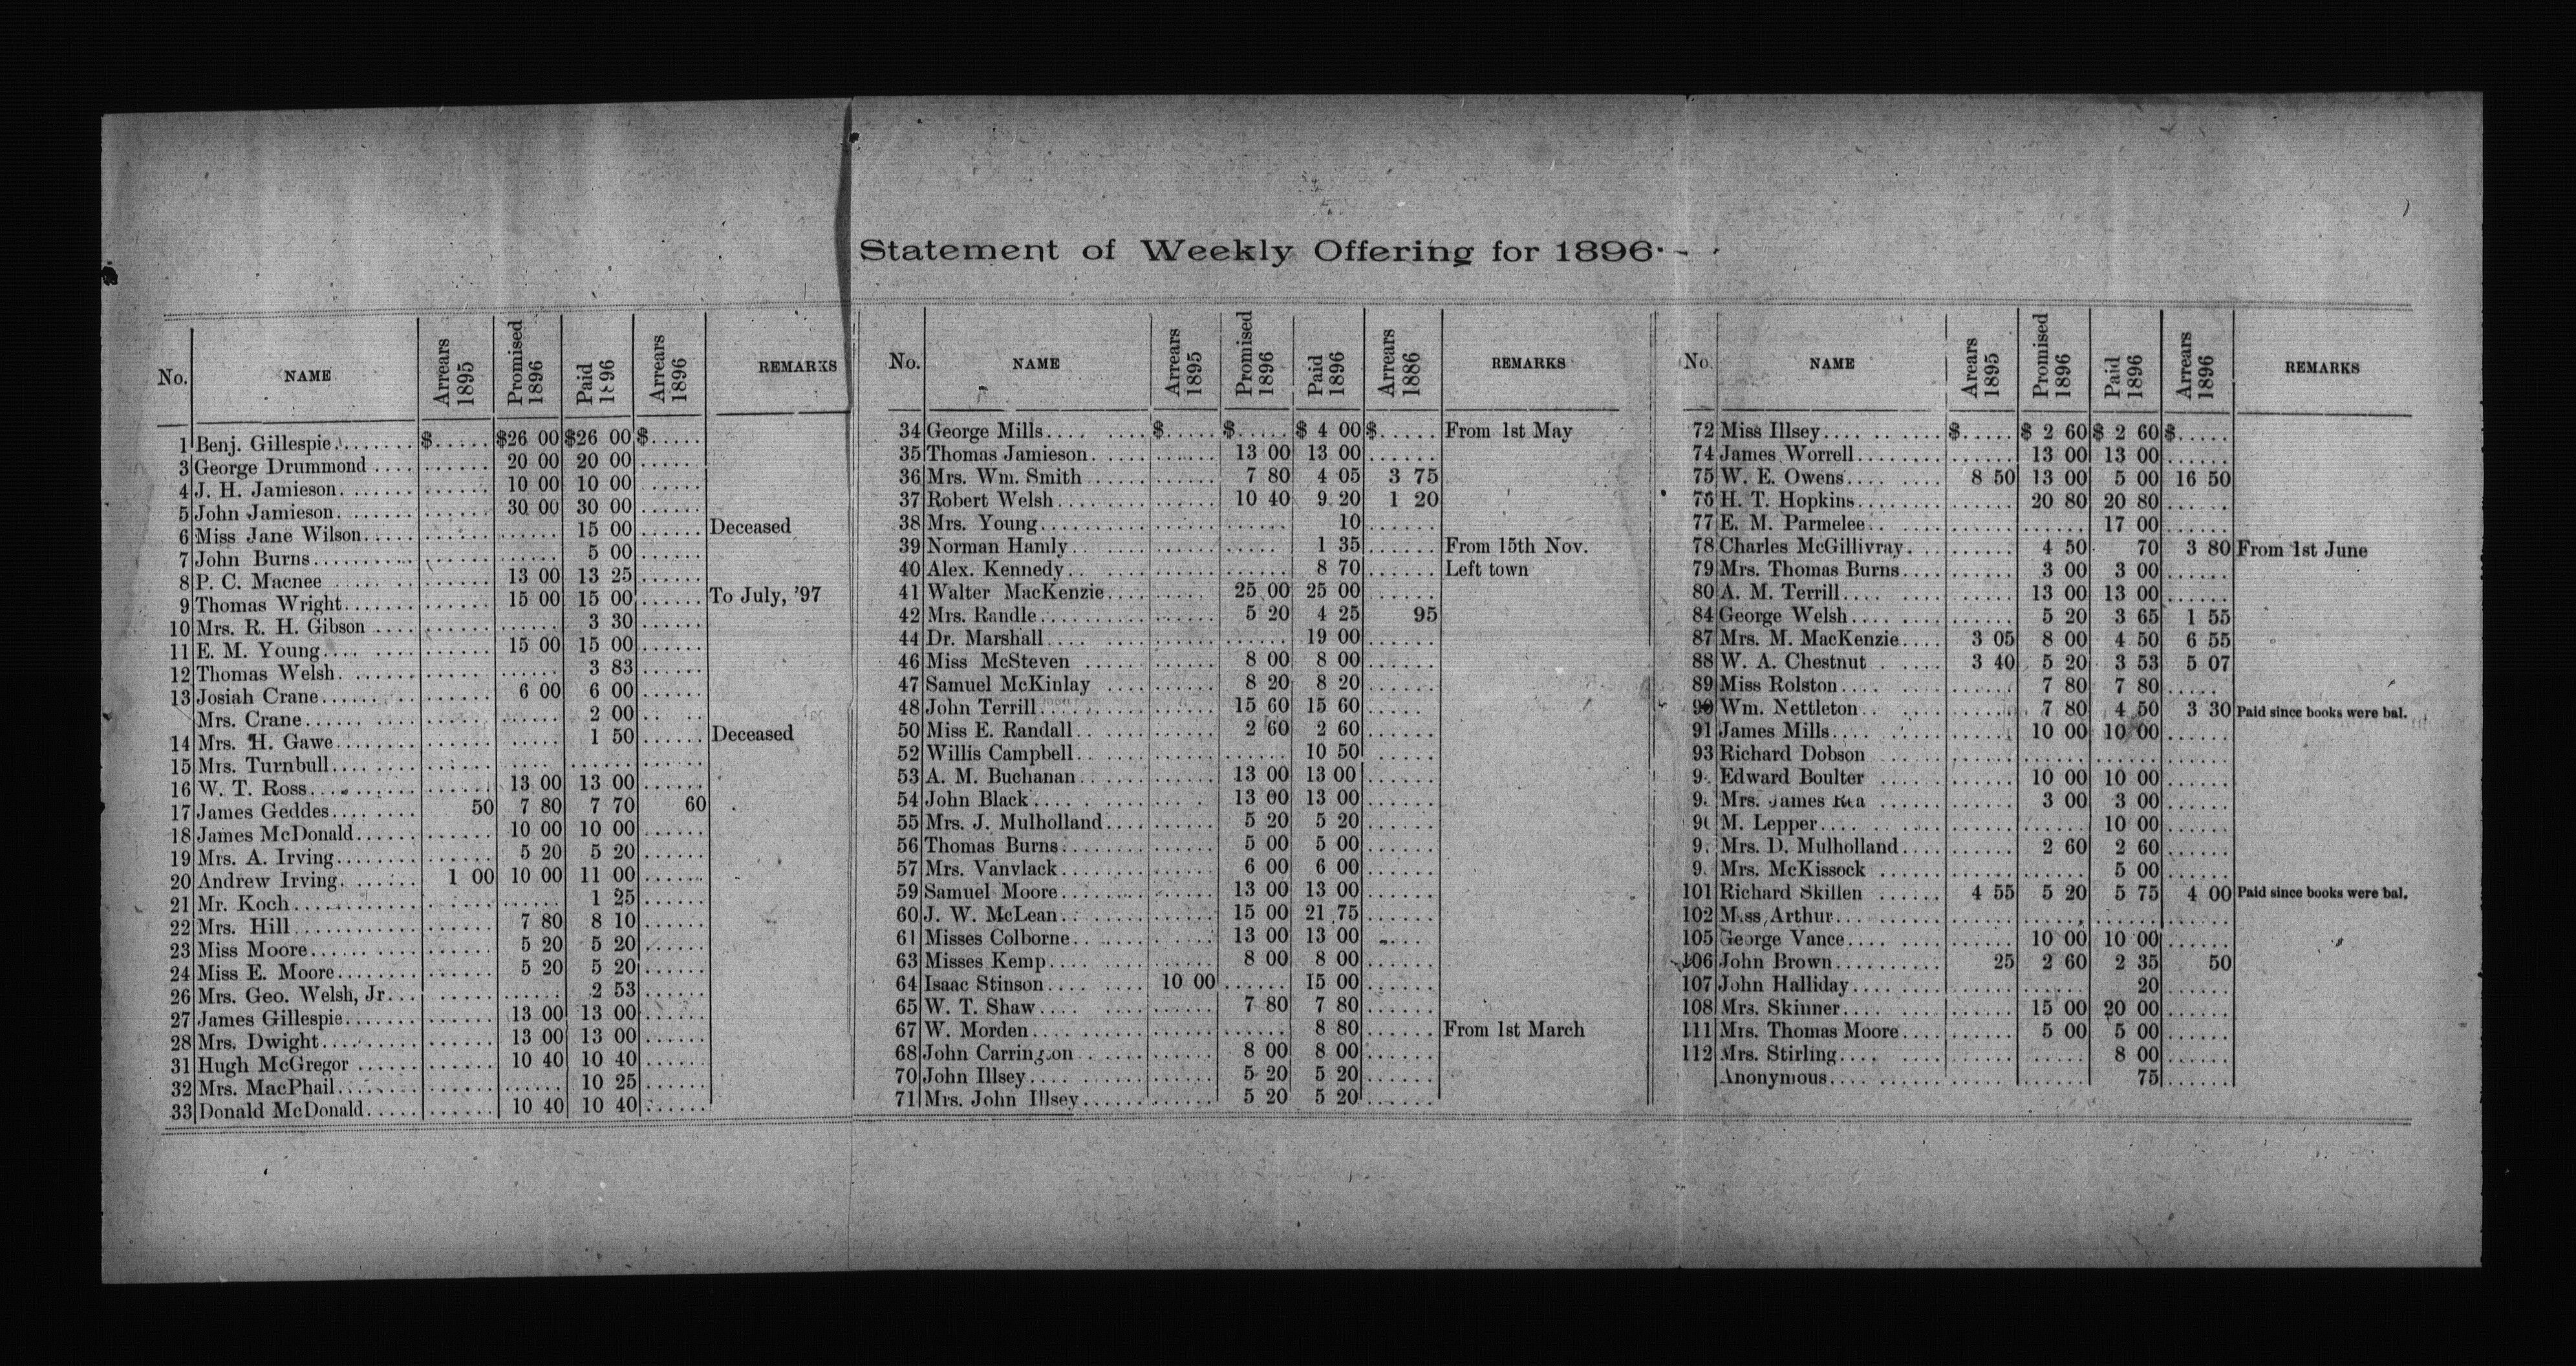 Statement of Weekly Offering for 1896
No. NAME Arrears 1895 Promised 1896 Paid 1896 Arrears 1896 REMARKS
1 Benj. Gillespie $ $26 00 $26 00 $
3 George Drummond 20 00 20 00
4 J. H. Jamieson 10 00 10 00
5 John Jamieson 30 00 30 00
6 Miss Jane Wilson 15 00 Deceased
7 John Burns 5 00
8 P. C. Macnee 13 00 13 25
9 Thomas Wright 15 00 15 00 To July, '97
10 Mrs. R. H. Gibson 3 30
11 E. M. Young 15 00 15 00
12 Thomas Welsh 3 83
13 Josiah Crane 6 00 6 00
Mrs. Crane 2 00
14 Mrs. H. Gawe 1 50 Deceased
15 Mrs. Turnbull
16 W. T. Ross 13 00 13 00
17 James Geddes 50 7 80 7 70 60
18 James McDonald 10 00 10 00
19 Mrs. A. Irving 5 20 5 20
20 Andrew Irving 1 00 10 00 11 00
21 Mr. Koch 1 25
22 Mrs. Hill 7 80 8 10
23 Miss Moore 5 20 5 20
24 Miss E. Moore 5 20 5 20
26 Mrs. Geo. Welsh, Jr 2 53
27 James Gillespie 13 00 13 00
28 Mrs. Dwight 13 00 13 00
31 Hugh McGregor 10 40 10 40
32 Mrs. MacPhail 10 25
33 Donald McDonald 10 40 10 40
No. NAME Arrears 1895 Promised 1896 Paid 1896 Arrears 1886 REMARKS
34 George Mills $ $ $ 4 00 $ From 1st May
35 Thomas Jamieson 13 00 13 00
36 Mrs. Wm. Smith 7 80 4 05 3 75
37 Robert Welsh 10 40 9 20 1 20
38 Mrs. Young 10
39 Norman Hamly 1 35 From 15th Nov.
40 Alex. Kennedy 8 70 Left town
41 Walter MacKenzie 25 00 25 00
42 Mrs. Randle 5 20 4 25 95
44 Dr. Marshall 19 00
46 Miss McSteven 8 00 8 00
47 Samuel McKinlay 8 20 8 20
48 John Terrill 15 60 15 60
50 Miss E. Randall 2 60 2 60
52 Willis Campbell 10 50
53 A. M. Buchanan 13 00 13 00
54 John Black 13 00 13 00
55 Mrs. J. Mulholland 5 20 5 20
56 Thomas Burns 5 00 5 00
57 Mrs. Vanvlack 6 00 6 00
59 Samuel Moore 13 00 13 00
60 J. W. McLean 15 00 21 75
61 Misses Colborne 13 00 13 00
63 Misses Kemp 8 00 8 00
64 Isaac Stinson 10 00 15 00
65 W. T. Shaw 7 80 7 80
67 W. Morden 8 80 From 1st March
68 John Carrington 8 00 8 00
70 John Illsey 5 20 5 20
71 Mrs. John Illsey 5 20 5 20
No. NAME Arears 1895 Promised 1896 Paid 1896 Arrears 1896 REMARKS
72 Miss Illsey $ $ 2 60 $ 2 60 $
74 James Worrell 13 00 13 00
75 W. E. Owens 8 50 13 00 5 00 16 50
76 H. T. Hopkins 20 80 20 80
77 E. M. Parmelee 17 00
78 Charles McGillivray 4 50 70 3 80 From 1st June
79 Mrs. Thomas Burns 3 00 3 00
80 A. M. Terrill 13 00 13 00
84 George Welsh 5 20 3 65 1 55
87 Mrs. M. MacKenzie 3 05 8 00 4 50 6 55
88 W. A. Chestnut 3 40 5 20 3 53 5 07
89 Miss Rolston 7 80 7 80
90 Wm. Nettleton 7 80 4 50 3 30 Paid since books were bal.
91 James Mills 10 00 10 00
93 Richard Dobson
9 Edward Boulter 10 00 10 00
9 Mrs. James Rea 3 00 3 00
9 M. Lepper 10 00
9 Mrs. D. Mulholland 2 60 2 60
9 Mrs. McKissock 5 00
101 Richard Skillen 4 55 5 20 5 75 4 00 Paid since books were bal.
102 Miss Arthur
105 George Vance 10 00 10 00
106 John Brown 25 2 60 2 35 50
107 John Halliday 20
108 Mrs. Skinner 15 00 20 00
111 Mrs. Thomas Moore 5 00 5 00
112 Mrs. Stirling 8 00
Anonymous 75